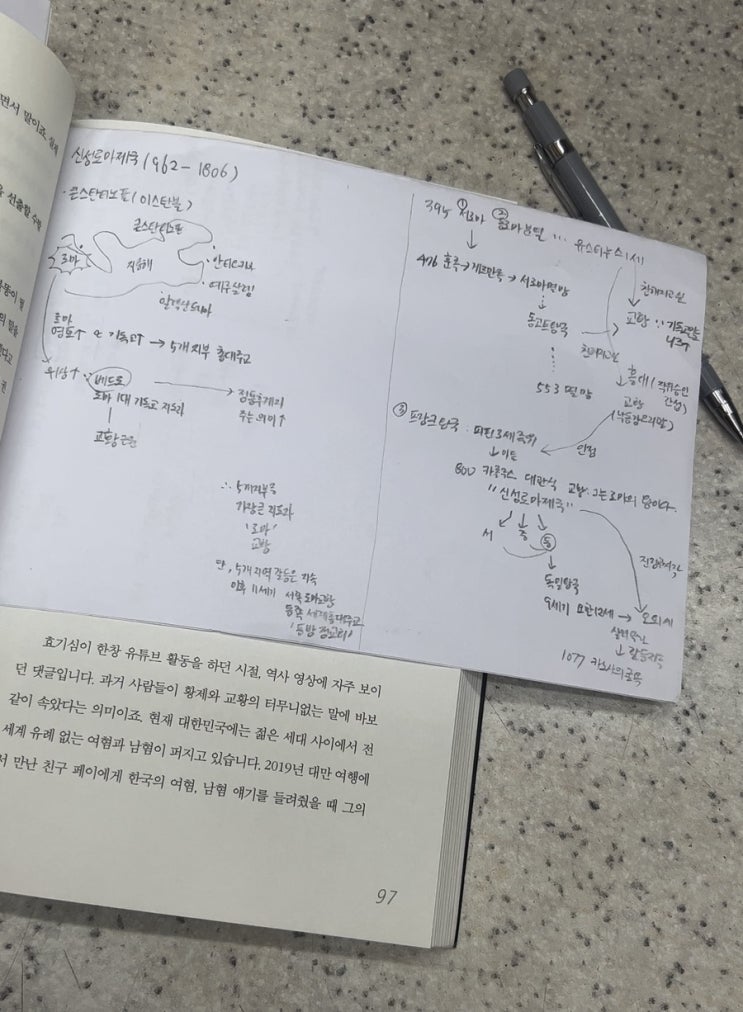 면서 말이죠. 실제
을 선출할 수밖
똥이 될
의 말을
권
신성로마제국(962 - 1806)
· 콘스탄티노플(이스탄불)
콘스탄티노플
로마
지중해
안티오키아
예루살렘
알렉산드리아
로마
영토↑ & 기독교↑ → 5개 지부 총대주교
위상↑ ∵ 베드로
로마 1대 기독교 지도자
교황 근원
정통후계의
주는 의미↑
∴ 5개 지부 중
가장 큰 지도자
'로마'
교황
단, 5개 지역 갈등은 지속
이후 11세기 서쪽 로마교황
동쪽 세계총대주교
'동방 정교회'
394 ① 서로마 ② 동로마 분열 ... 유스티누스 1세
476 훈족 → 게르만족 → 서로마 멸망
동고트왕국
553 멸망
교황 ∵ 기독교
총대
교황
③ 프랑크왕국 : 피핀 3세 즉위
↓ 아들
인정
800 카롤루스 대관식 교황
"신성로마제국"
서 중 동
독일왕국
9세기 요한12세 → 오토1세
↓ 갈등지속
1077 카노사의 굴욕
효기심이 한창 유튜브 활동을 하던 시절, 역사 영상에 자주 보이
던 댓글입니다. 과거 사람들이 황제와 교황의 터무니없는 말에 바보
같이 속았다는 의미이죠. 현재 대한민국에는 젊은 세대 사이에서 전
세계 유례 없는 여혐과 남혐이 퍼지고 있습니다. 2019년 대만 여행에
서 만난 친구 페이에게 한국의 여혐, 남혐 얘기를 들려줬을 때 그의
97